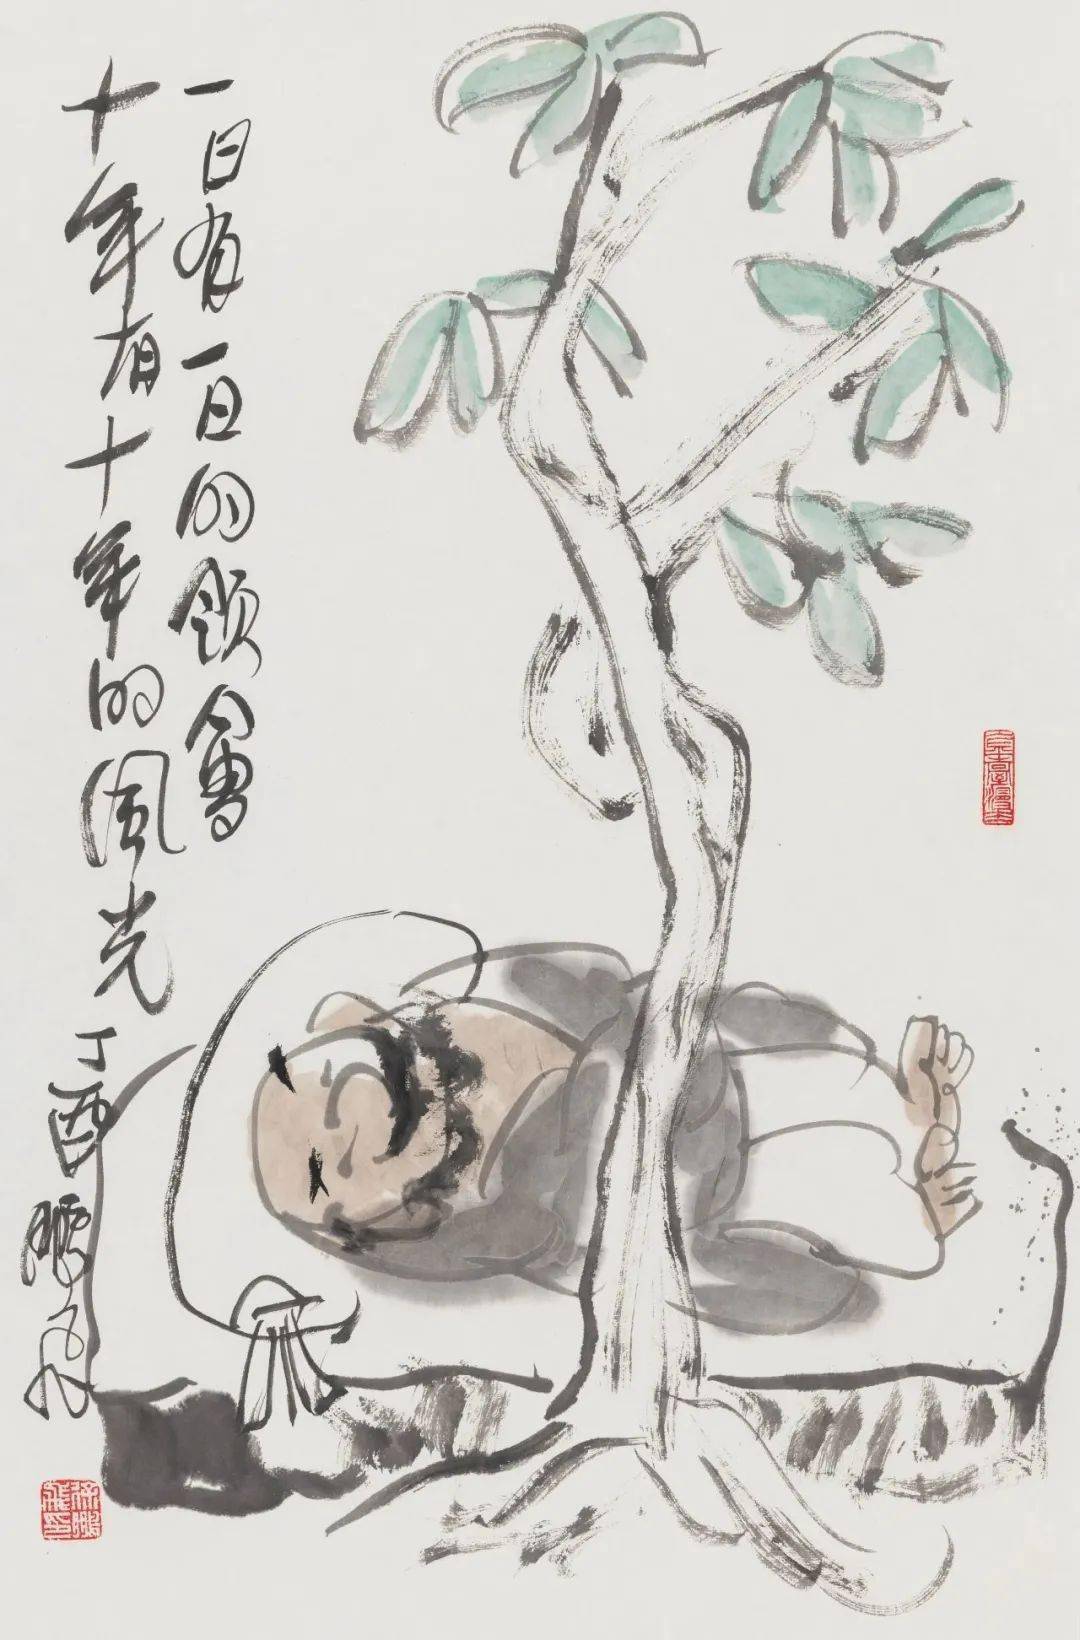 一日有一日的领會
十年有十年的风光
丁酉鵬飛